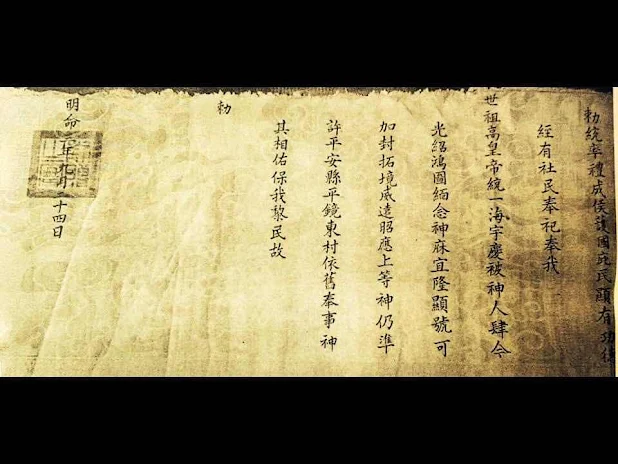 勅統率禮成侯護國庇民顯有功德
經有社民奉祀奉我
世祖高皇帝統一海宇慶被神人肆今
光紹鴻圖緬念神庥宜隆顯號可
加封拓境威遠昭應上等神仍準
許平安縣平鏡東村依舊奉事神
其相佑保我黎民故
勅
明命年九月十四日